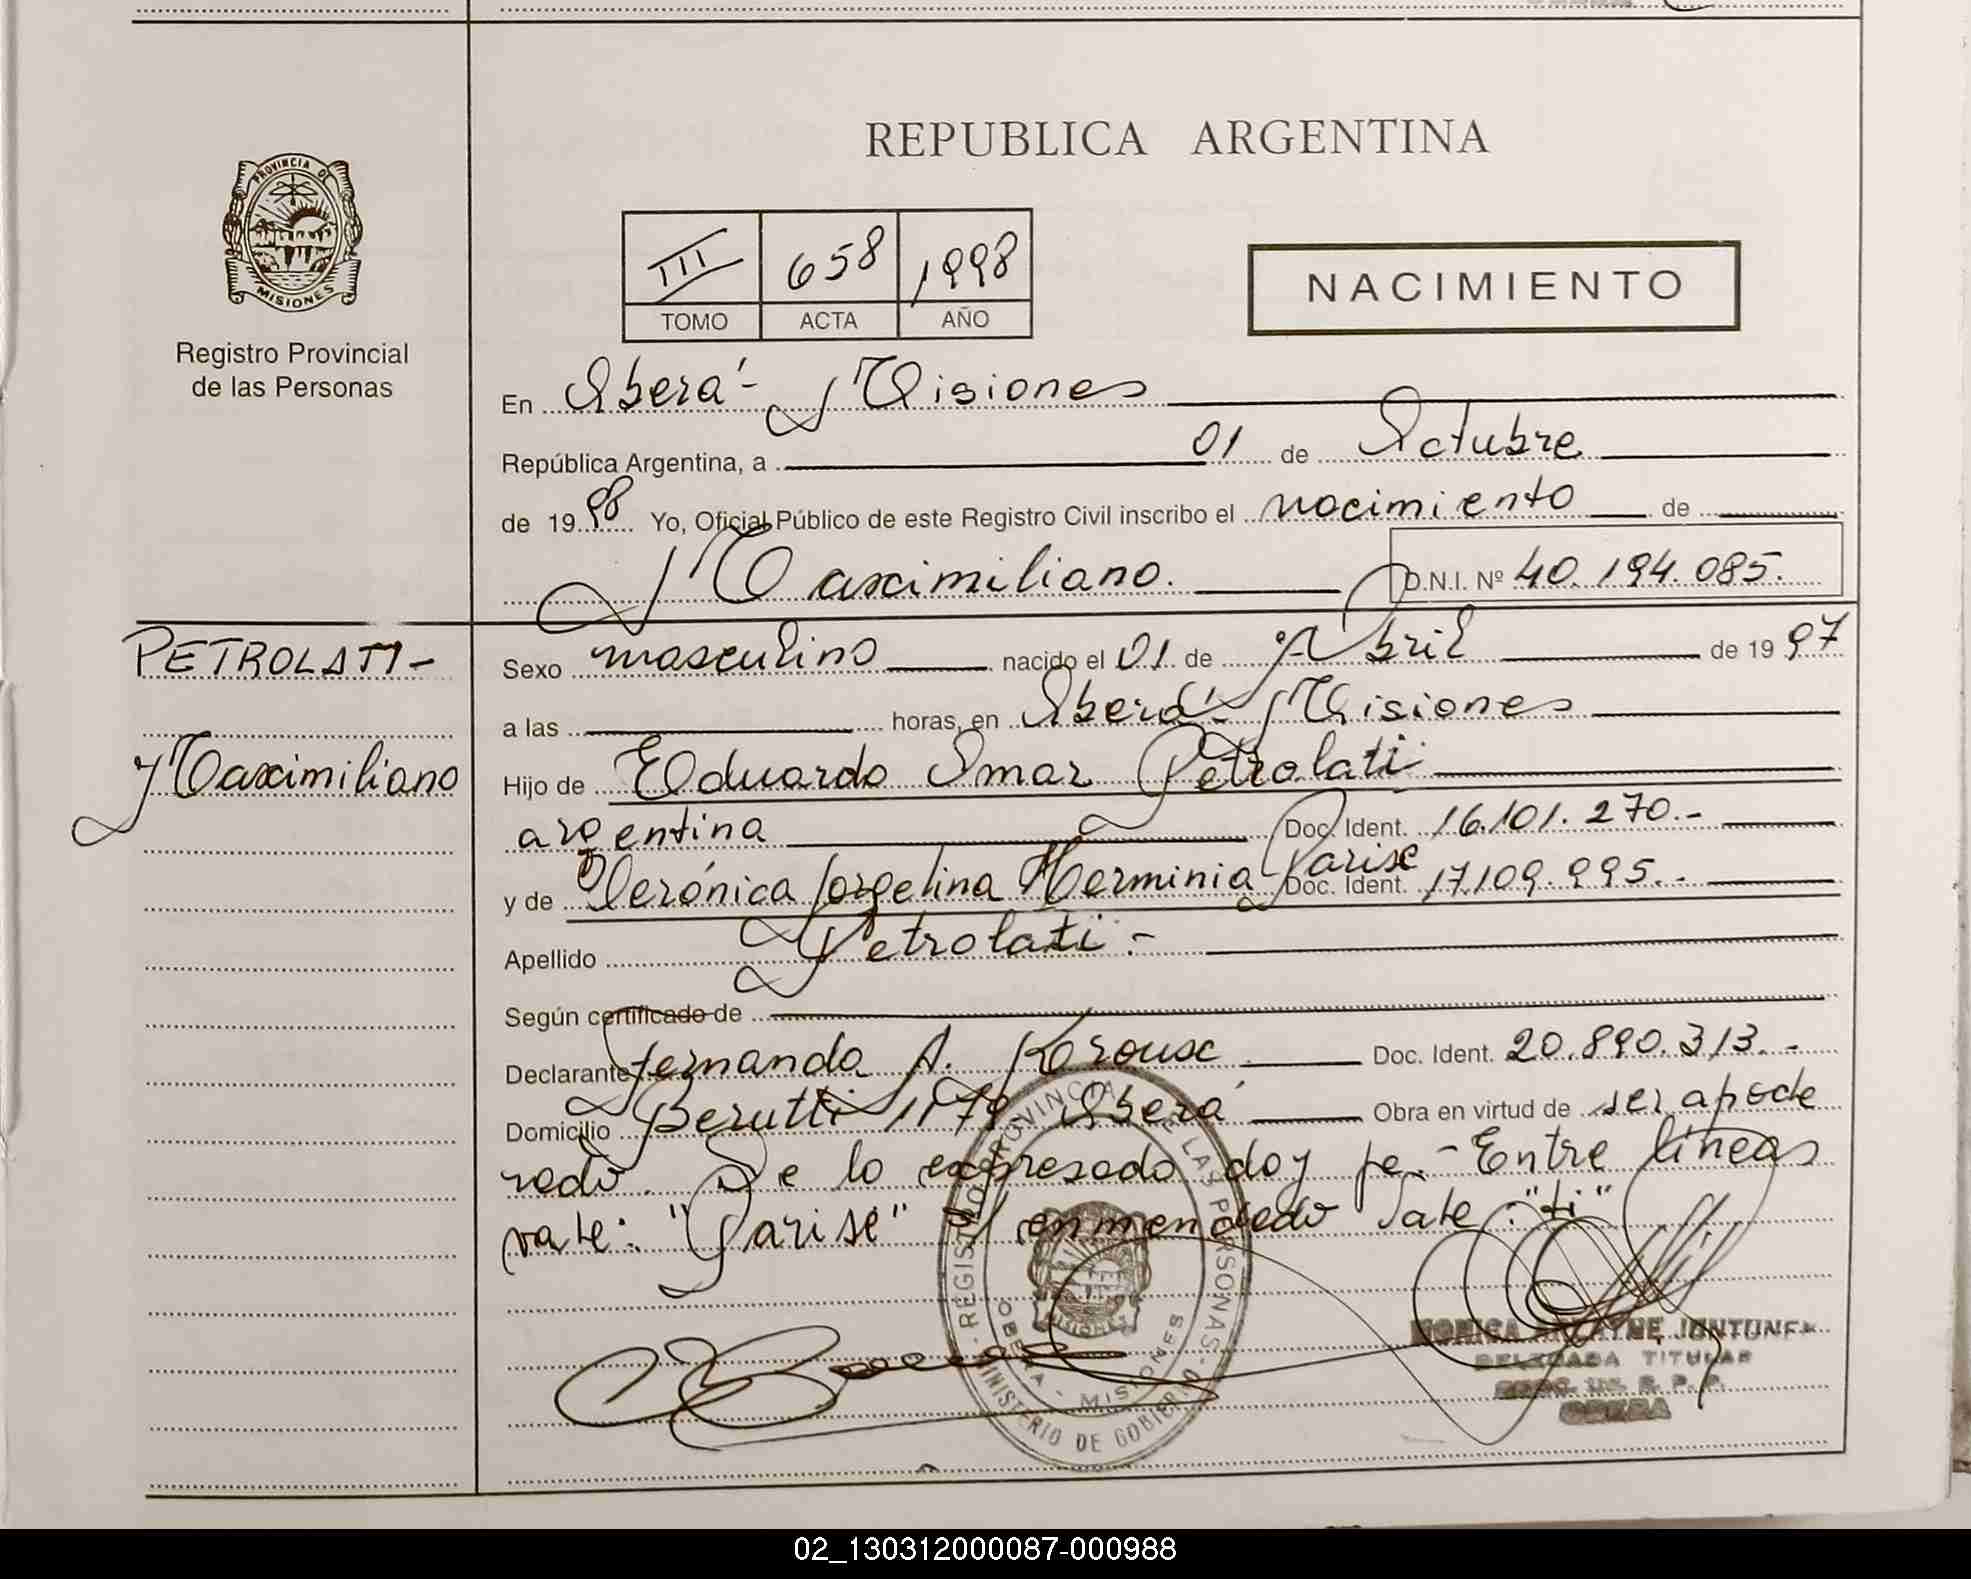 REPUBLICA ARGENTINA
PROVINCIA DE
MISIONES
Registro Provincial
de las Personas
III 658 1998
TOMO ACTA AÑO
NACIMIENTO
En Oberá - Misiones
República Argentina, a 01 de Octubre
de 1998 Yo, Oficial Público de este Registro Civil inscribo el nacimiento de
Maximiliano. D.N.I. Nº 40.194.085.
PETROLATI-
Maximiliano
Sexo masculino nacido el 01 de Abril de 1997
a las horas, en Oberá - Misiones
Hijo de Eduardo Omar Petrolati
argentina Doc. Ident. 16.101.270.-
y de Verónica Jorgelina Herminia Parise Doc. Ident. 17.109.995.-
Apellido Petrolati.-
Según certificado de
Declarante Fernanda A. Doc. Ident. 20.890.313.-
Domicilio Berutti 1179 Oberá Obra en virtud de ser apode
rado. De lo expresado doy fe.- Entre líneas
vale: "Parise" enmendado vale: "ti"
REGISTRO PROVINCIAL DE LAS PERSONAS
MINISTERIO DE GOBIERNO
OBERA - MISIONES
MISIONES
MONICA JUNTUNEN
DELEGADA TITULAR
R. P. P.
OBERA
02_130312000087-000988